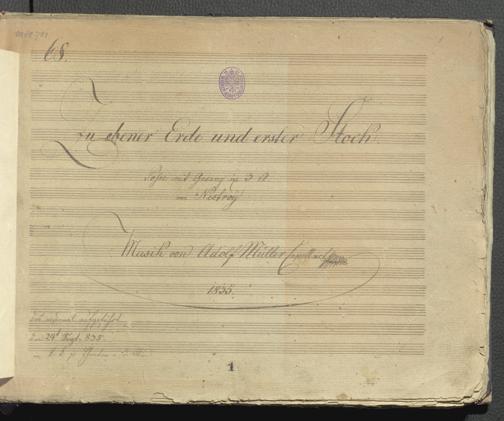 68.
Zu ebener Erde und erster Stock.
Posse mit Gesang in 3 A.
von Nestroy
Musik von Adolf Müller Capellmstr
1835.
Zum erstenmal aufgeführt
den 24t Sept. 835.
1